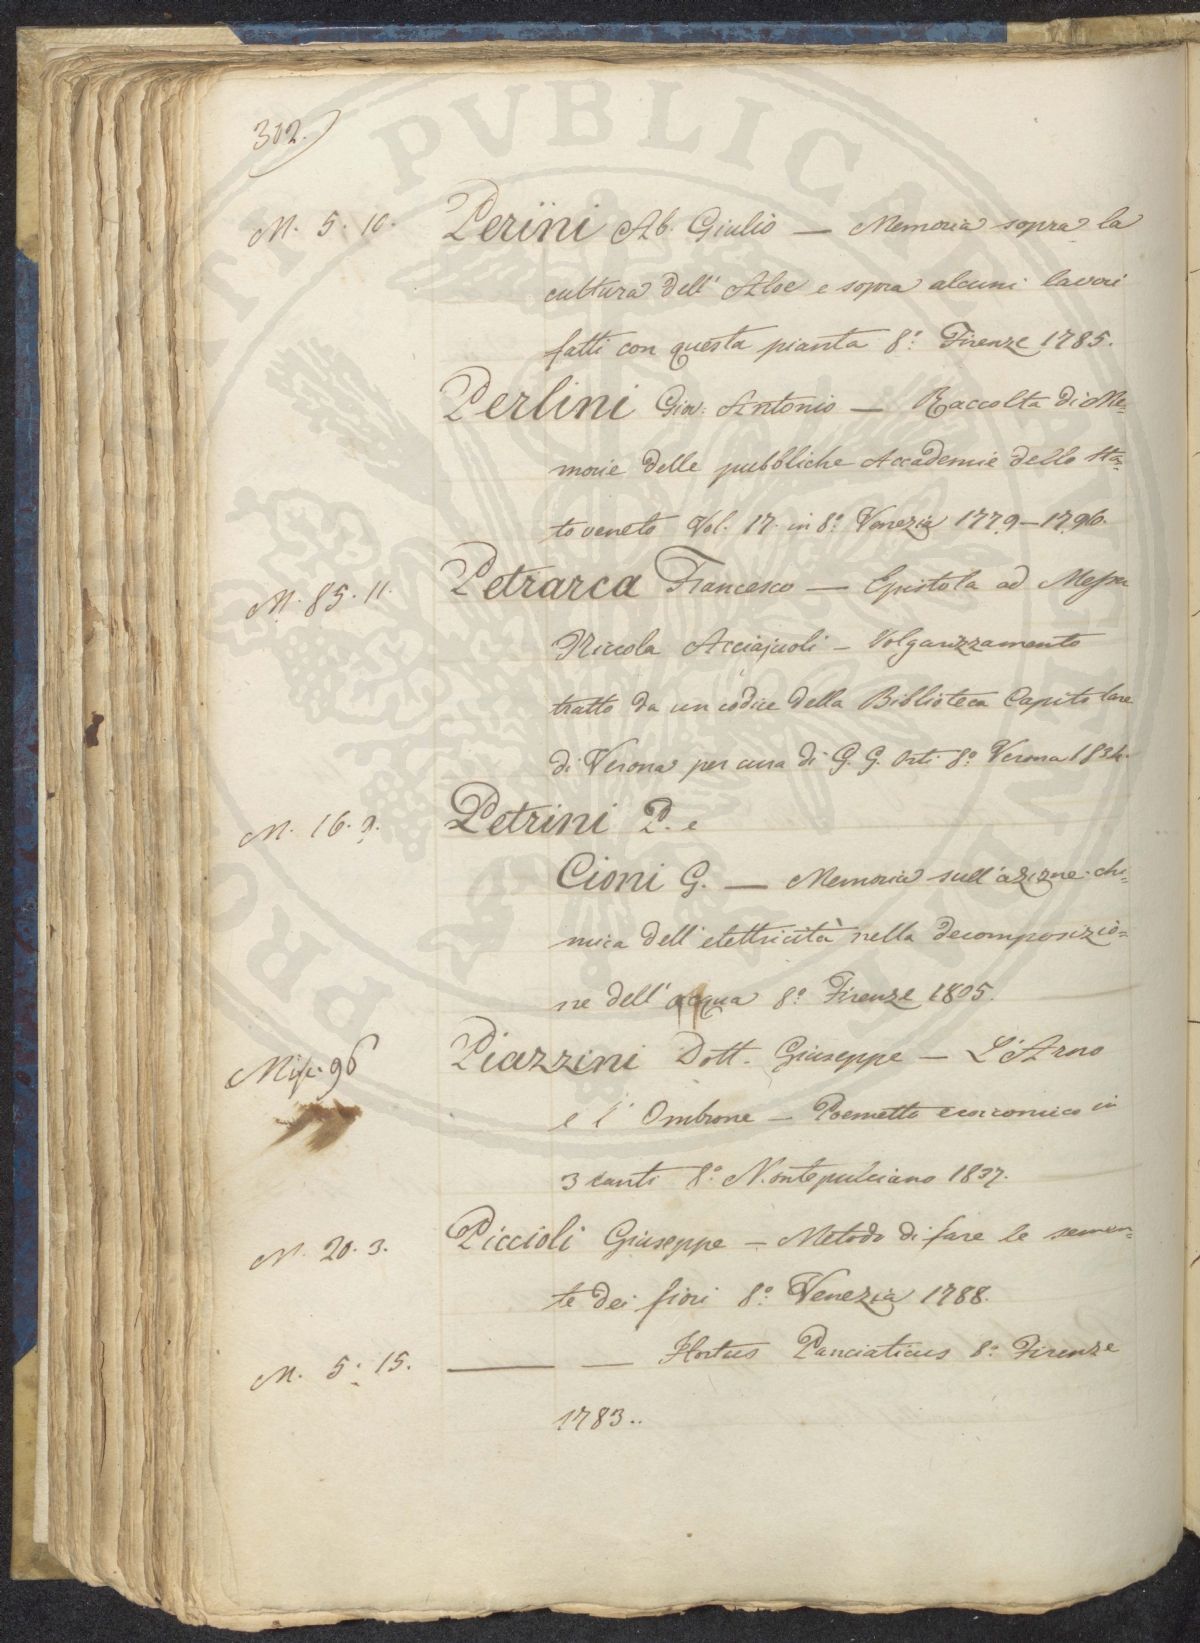 302.
M. 5. 10. Perini Ab. Giulio — Memoria sopra la
cultura dell' Aloe e sopra alcuni lavori
fatti con questa pianta 8.° Firenze 1785.
Perlini Giov: Antonio — Raccolta di Me=
morie delle pubbliche Accademie dello Sta=
to veneto Vol. 17. in 8.° Venezia 1779-1796.
M. 85. 11. Petrarca Francesco — Epistola ad Messer
Niccola Acciajuoli — Volgarizzamento
tratto da un codice della Biblioteca Capitolare
di Verona per cura di G. G. Orti 8.° Verona 1834.
M. 16. 9. Petrini P. e
Cioni G. — Memoria sull'azione chi=
mica dell' elettricità nella decomposizio=
ne dell' acqua 8.° Firenze 1805.
Mis. 96 Piazzini Dott. Giuseppe — L'Arno
e l' Ombrone — Poemetto economico in
3 canti 8.° Montepulciano 1837.
M. 20. 3. Piccioli Giuseppe — Metodo di fare le semen=
te dei fiori 8.° Venezia 1788.
M. 5. 15. ——— — Hortus Panciaticus 8.° Firenze
1783..